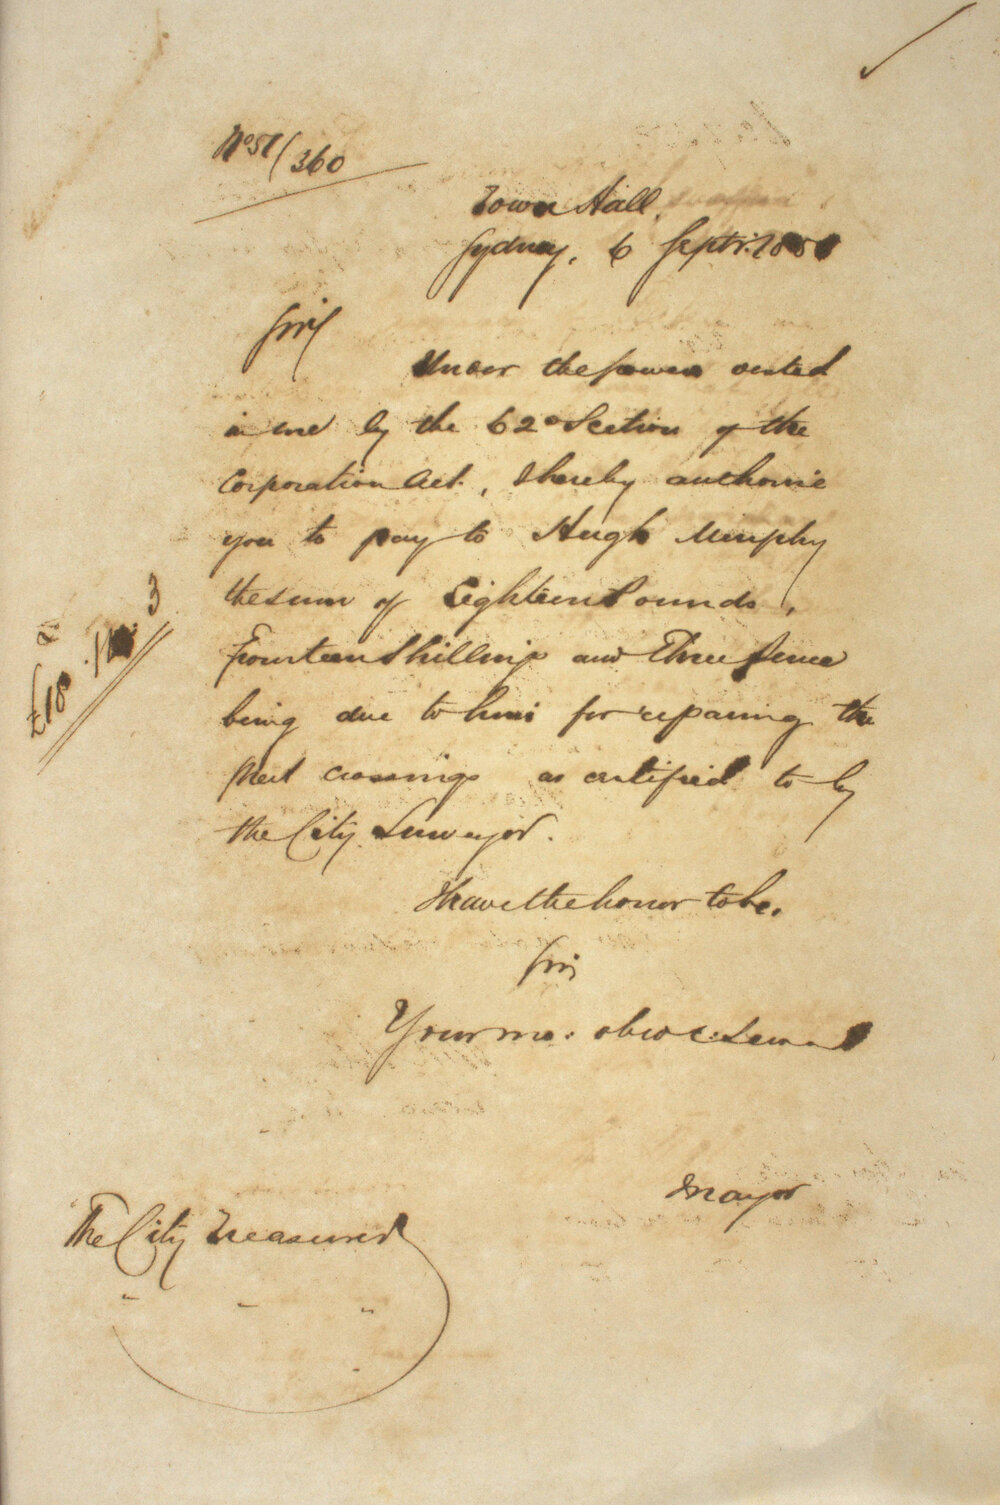 No 51/360
Town Hall,
Sydney, 6 Septr. 1851
Sir,
Under the power vested
in me by the 62d Section of the
Corporation Act, I hereby authorise
you to pay to Hugh Murphy
the sum of Eighteen Pounds,
Fourteen Shillings and Three pence
being due to him for repairing the
crossings as certified to by
the City Surveyor.
£18. 3
I have the honor to be,
Sir,
Your mo: obedt: Servant
Mayor
The City Treasurer
" " "